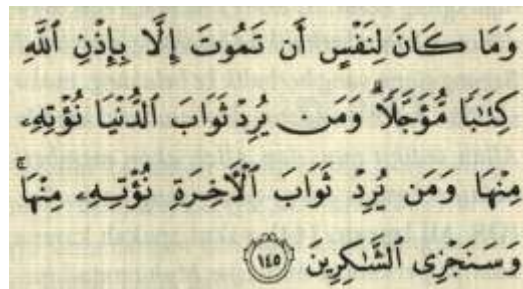 وَمَا كَانَ لِنَفْسٍ أَن تَمُوتَ إِلَّا بِإِذْنِ اللَّهِ
كِتَٰبًا مُّؤَجَّلًا ۗ وَمَن يُرِدْ ثَوَابَ الدُّنْيَا نُؤْتِهِۦ
مِنْهَا وَمَن يُرِدْ ثَوَابَ ٱلْآخِرَةِ نُؤْتِهِۦ مِنْهَا ۚ
وَسَنَجْزِى ٱلشَّٰكِرِينَ ١٤٥